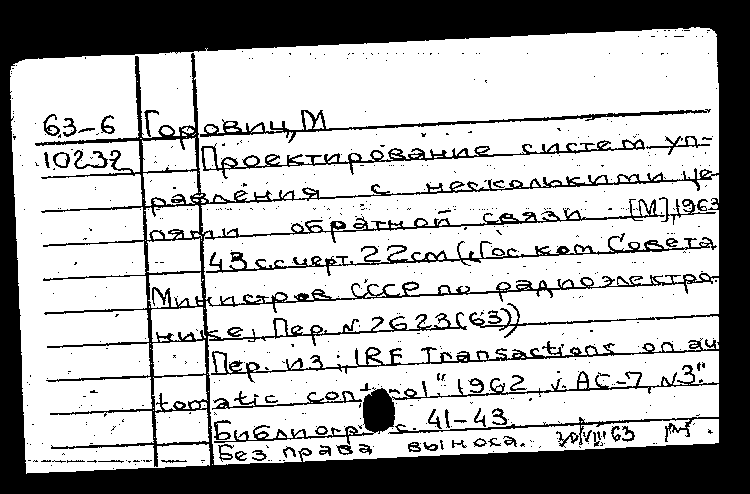 63-6 Горовиц, М
10232 Проектирование систем уп-
равления с несколькими це-
пями обратной связи [М], 1963
43 с. с черт. 22 см (Гос. ком. Совета
Министров СССР по радиоэлектро-
нике, Пер. N 2623(63))
Пер. из: "IRE Transactions on au
tomatic control." 1962, v. AC-7, N3."
Библиогр. с. 41-43.
Без права выноса. VIII 63